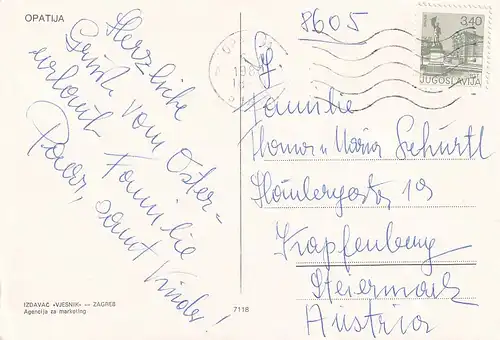 OPATIJA
Herzliche
Grüße vom Oster-
urlaub Familie
samt Kinder!
8605
3,40
JUGOSLAVIJA
Familie
Thomas u Maria Schürtl
19
Kapfenberg
Steiermark
Austria
IZDAVAČ »VJESNIK« — ZAGREB
Agencija za marketing
7118